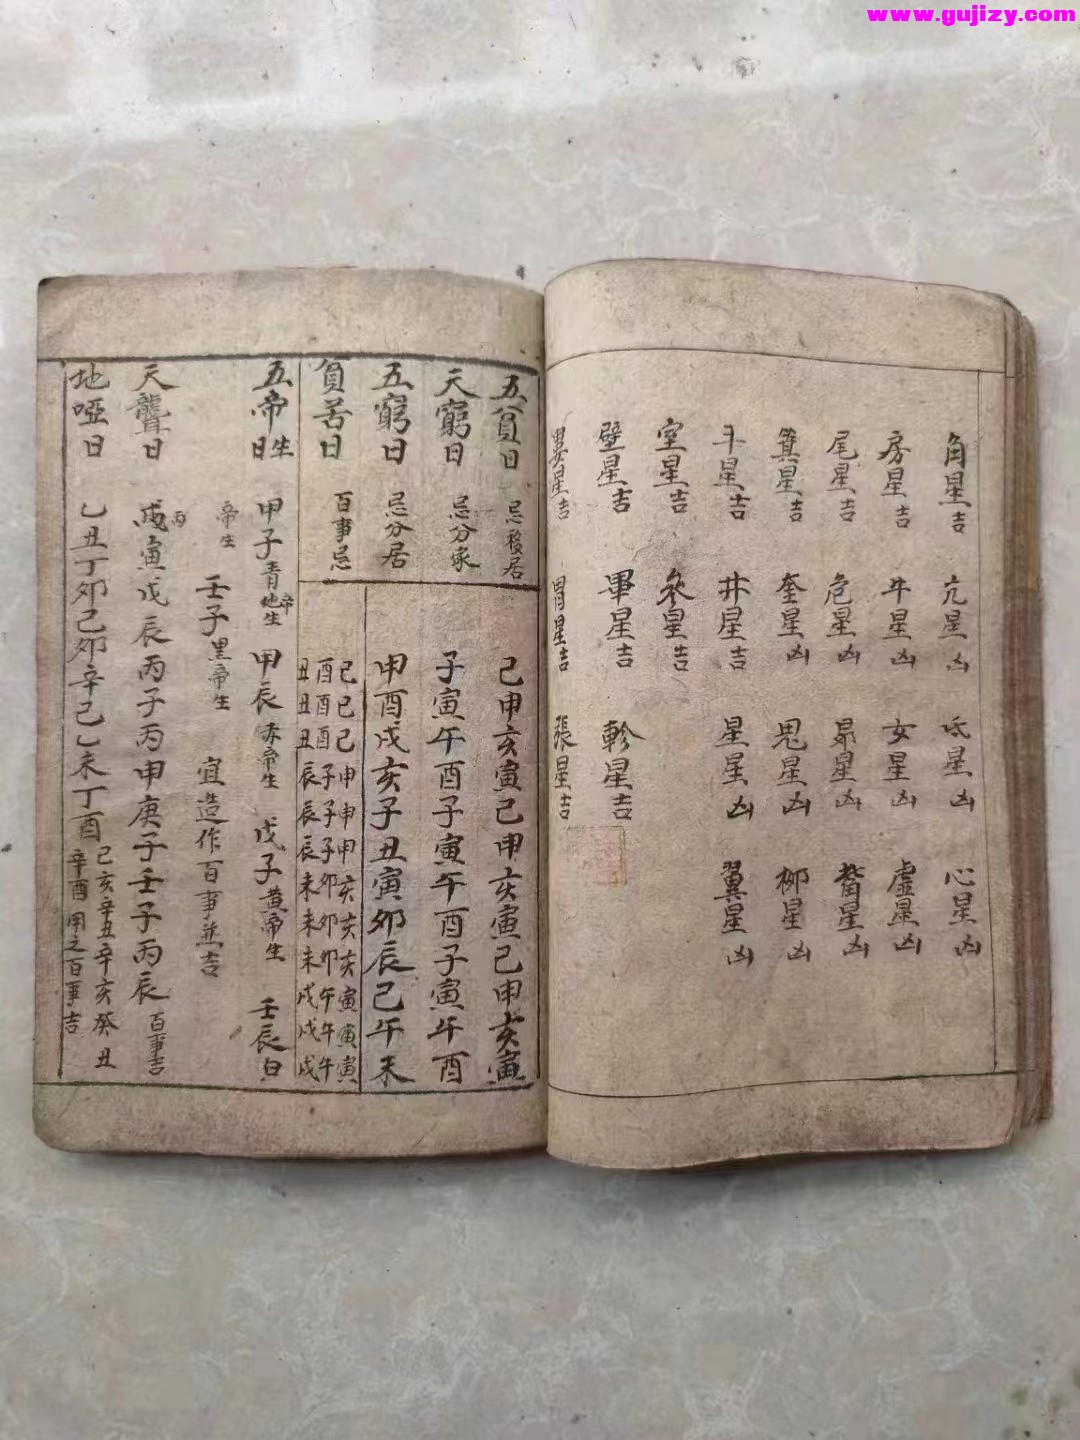 www.gujizy.com
角星吉 亢星凶 氐星凶 心星凶
房星吉 牛星凶 女星凶 虛星凶
尾星吉 危星凶 昴星凶 觜星凶
箕星吉 奎星凶 鬼星凶 柳星凶
斗星吉 井星吉 星星凶 翼星凶
室星吉 參星吉
壁星吉 畢星吉 軫星吉
婁星吉 胃星吉 張星吉
五貧日 忌移居 己申亥寅己申亥寅己申亥寅
天窮日 忌分家 子寅午酉子寅午酉子寅午酉
五窮日 忌分居 申酉戌亥子丑寅卯辰己午未
貧苦日 百事忌
己己己申申申亥亥亥寅寅寅
酉酉酉子子子卯卯卯午午午
丑丑丑辰辰辰未未未戌戌戌
五帝生日 甲子青帝生 甲辰赤帝生 戊子黄帝生 壬辰白
帝生 壬子黑帝生 宜造作百事並吉
天聾日 丙寅戊辰丙子丙申庚子壬子丙辰 百事吉
地啞日 乙丑丁卯己卯辛己乙未丁酉己亥辛丑辛亥癸丑
辛酉用之百事吉